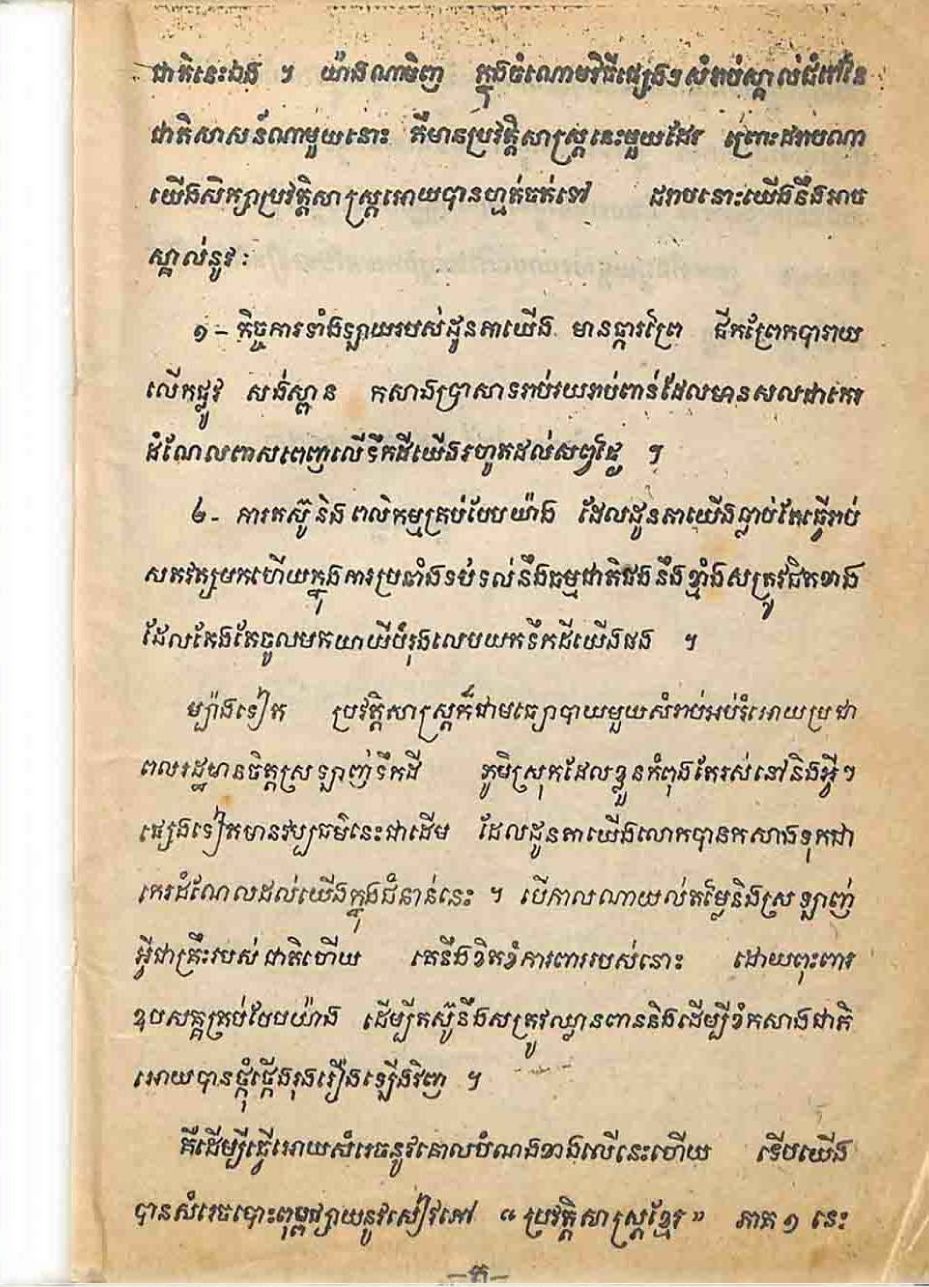 ជាតិនេះឯង ។ យ៉ាងណាមិញ ក្នុងចំណោមវិធីផ្សេងៗសំរាប់ស្គាល់ជំរៅនៃ
ជាតិសាសន៍ណាមួយនោះ គឺមានប្រវត្តិសាស្ត្រនេះមួយដែរ ព្រោះដរាបណា
យើងសិក្សាប្រវត្តិសាស្ត្រអោយបានហ្មត់ចត់ទៅ ដរាបនោះយើងនឹងអាច
ស្គាល់នូវ :
១- កិច្ចការទាំងឡាយរបស់ដូនតាយើង មានឆ្ការព្រៃ ជីកព្រែកបារាយ
លើកផ្លូវ សង់ស្ពាន កសាងប្រាសាទរាប់រយរាប់ពាន់ដែលមានសល់ជាកេរ
ដំណែលពាសពេញលើទឹកដីយើងរហូតដល់សព្វថ្ងៃ ។
២- ការតស៊ូនិងពលិកម្មគ្រប់បែបយ៉ាង ដែលដូនតាយើងធ្លាប់តែធ្វើរាប់
សតវត្សមកហើយក្នុងការប្រឆាំងទប់ទល់នឹងធម្មជាតិផងនឹងខ្មាំងសត្រូវជិតខាង
ដែលតែងតែចូលមកយាយីបំរុងលេបយកទឹកដីយើងផង ។
ម្យ៉ាងទៀត ប្រវត្តិសាស្ត្រក៏ជាមធ្យោបាយមួយសំរាប់អប់រំអោយប្រជា
ពលរដ្ឋមានចិត្តស្រឡាញ់ទឹកដី ភូមិស្រុកដែលខ្លួនកំពុងតែរស់នៅនិងអ្វីៗ
ផ្សេងទៀតមានវប្បធម៌នេះជាដើម ដែលដូនតាយើងលោកបានកសាងទុកជា
កេរដំណែលដល់យើងក្នុងជំនាន់នេះ ។ បើកាលណាយល់តម្លៃនិងស្រឡាញ់
អ្វីជាគ្រឹះរបស់ជាតិហើយ គេនឹងខិតខំការពាររបស់នោះ ដោយពុះពារ
ឧបសគ្គគ្រប់បែបយ៉ាង ដើម្បីតស៊ូនឹងសត្រូវឈ្លានពាននិងដើម្បីខំកសាងជាតិ
អោយបានថ្កុំថ្កើងរុងរឿងឡើងវិញ ។
គឺដើម្បីធ្វើអោយសំរេចនូវគោលបំណងខាងលើនេះហើយ ទើបយើង
បានសំរេចបោះពុម្ពផ្សាយនូវសៀវភៅ “ ប្រវត្តិសាស្ត្រខ្មែរ ” ភាគ ១ នេះ
–គ–